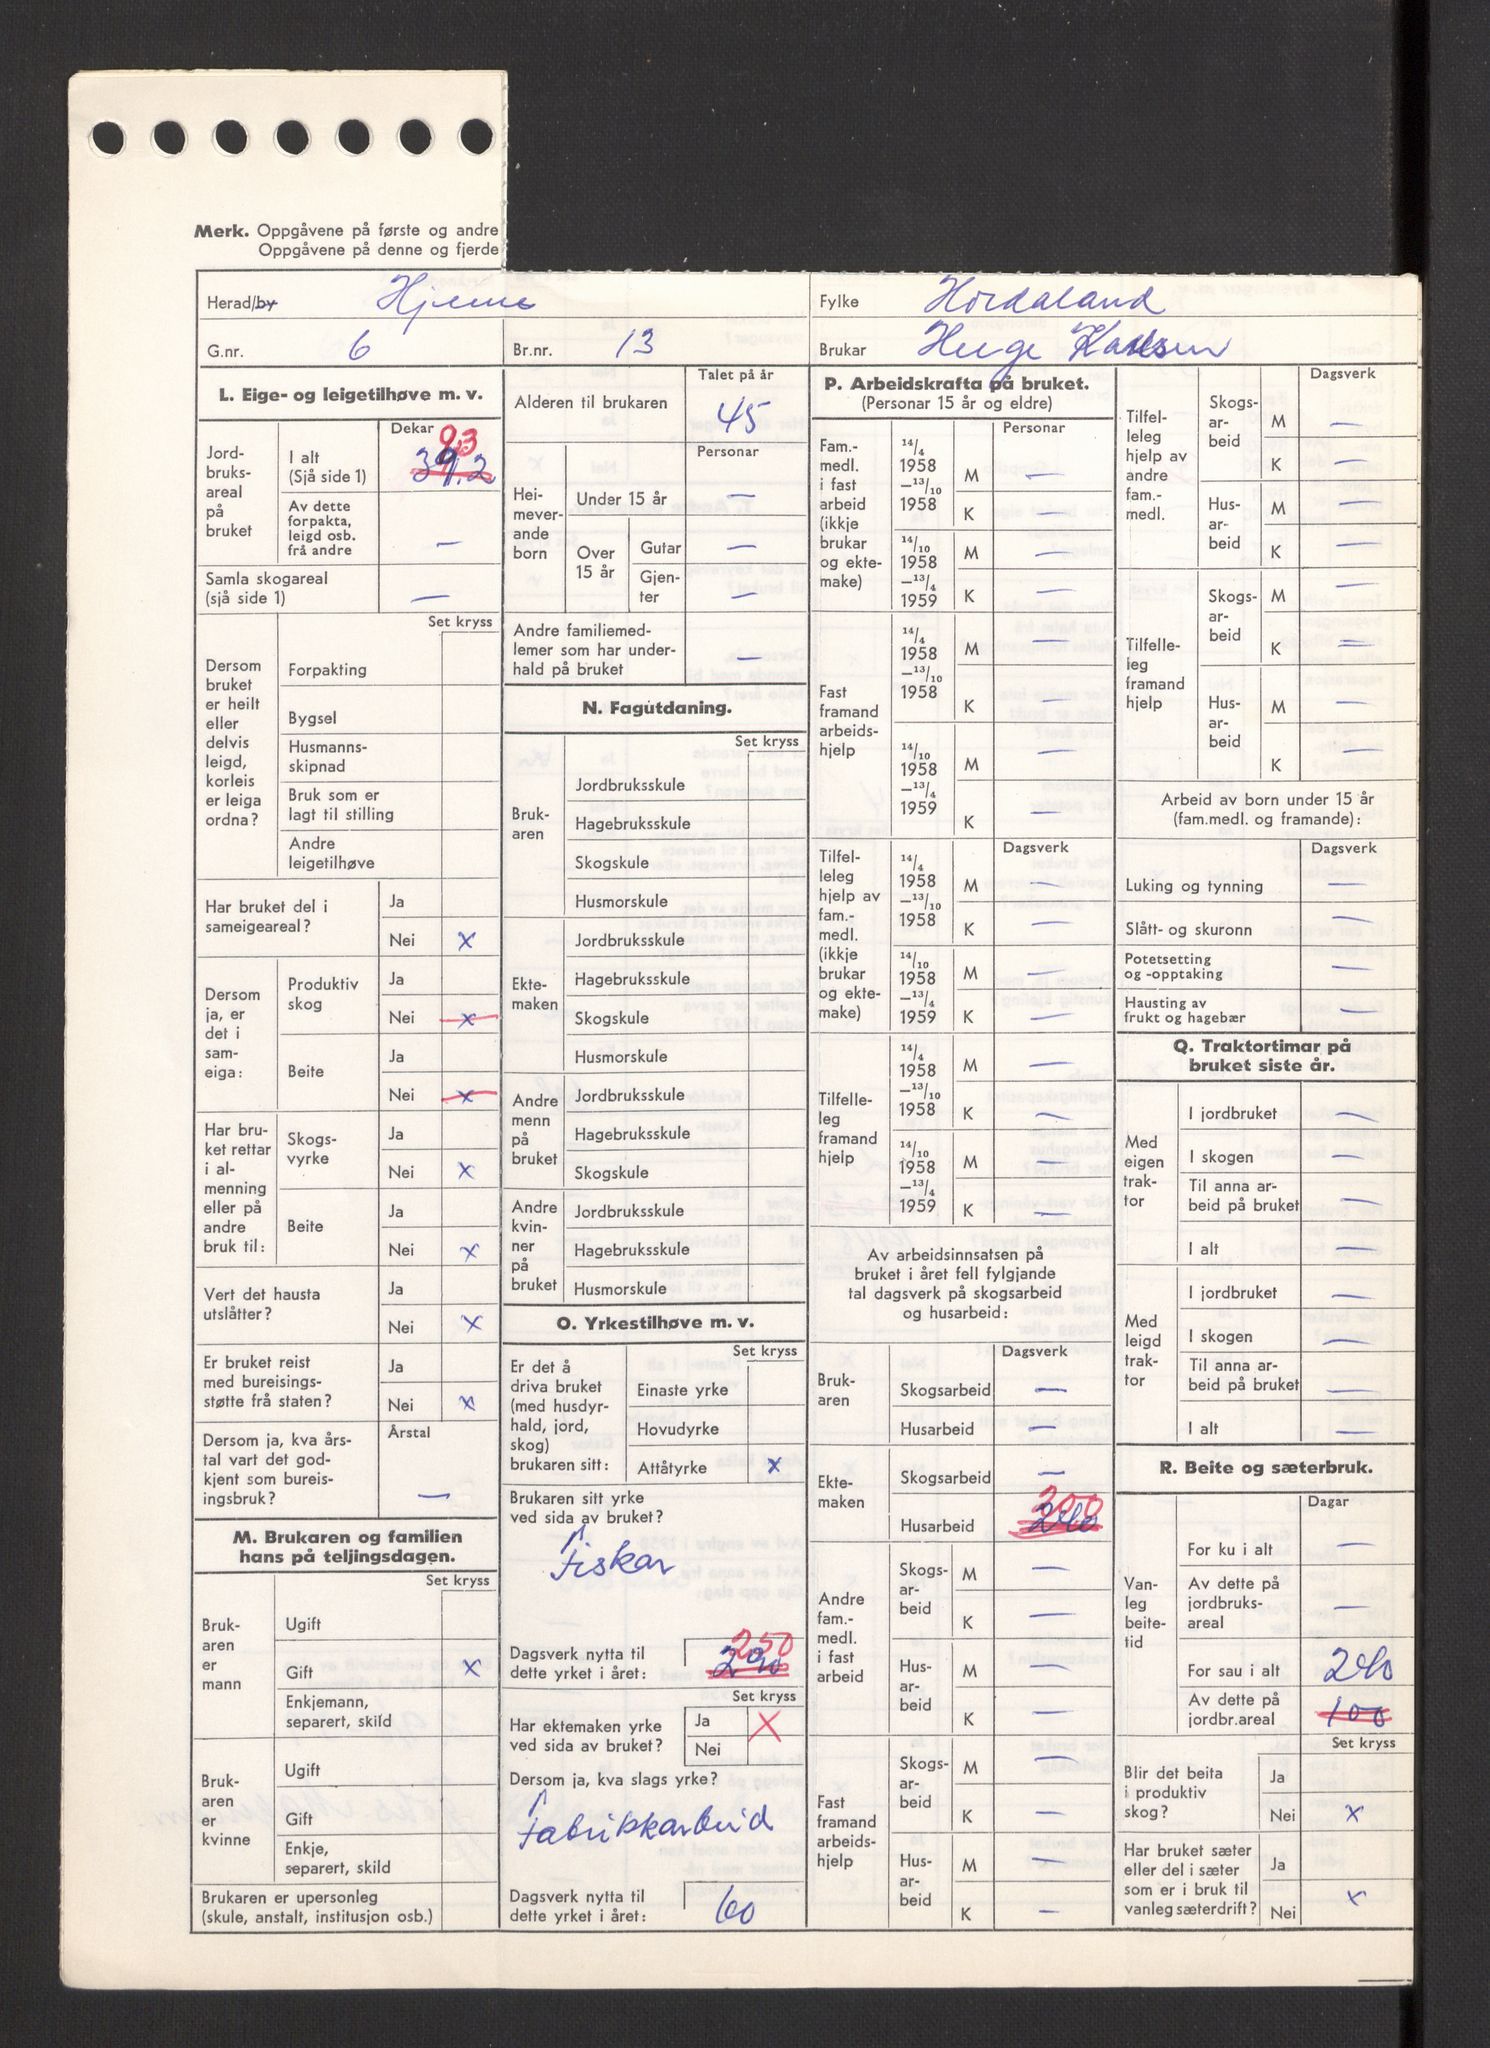 Merk. Oppgåvene på første og andre
Oppgåvene på denne og fjerde
Herad/by Hjelme
Fylke Hordaland
G.nr. 6
Br.nr. 13
Brukar Helge Karlsen
L. Eige- og leigetilhøve m. v.
Dekar
Jord-
bruks-
areal
på
bruket
I alt
(Sjå side 1)
9.3
Av dette
forpakta,
leigd osb.
frå andre —
Samla skogareal
(sjå side 1) —
Set kryss
Dersom
bruket
er heilt
eller
delvis
leigd,
korleis
er leiga
ordna?
Forpakting
Bygsel
Husmanns-
skipnad
Bruk som er
lagt til stilling
Andre
leigetilhøve
Har bruket del i
sameigeareal?
Ja
Nei x
Dersom
ja, er
det i
sam-
eiga:
Produktiv
skog
Ja
Nei x
Beite
Ja
Nei x
Har bru-
ket rettar
i al-
menning
eller på
andre
bruk til:
Skogs-
vyrke
Ja
Nei x
Beite
Ja
Nei x
Vert det hausta
utslåtter?
Ja
Nei x
Er bruket reist
med bureisings-
støtte frå staten?
Ja
Nei x
Dersom ja, kva års-
tal vart det god-
kjent som bureis-
ingsbruk?
Årstal
—
M. Brukaren og familien
hans på teljingsdagen.
Set kryss
Bruk-
aren
er
mann
Ugift
Gift x
Enkjemann,
separert, skild
Bruk-
aren
er
kvinne
Ugift
Gift
Enkje,
separert, skild
Brukaren er upersonleg
(skule, anstalt, institusjon osb.)
Talet på år
Alderen til brukaren 45
Personar
Hei-
mever-
ande
born
Under 15 år —
Over
15 år
Gutar —
Gjen-
ter —
Andre familiemed-
lemer som har under-
hald på bruket —
N. Fagutdaning.
Set kryss
Bruk-
aren
Jordbruksskule
Hagebruksskule
Skogskule
Husmorskule
Ekte-
maken
Jordbruksskule
Hagebruksskule
Skogskule
Husmorskule
Andre
menn
på
bruket
Jordbruksskule
Hagebruksskule
Skogskule
Andre
kvin-
ner
på
bruket
Jordbruksskule
Hagebruksskule
Husmorskule
O. Yrkestilhøve m. v.
Set kryss
Er det å
driva bruket
(med husdyr-
hald, jord,
skog)
brukaren sitt:
Einaste yrke
Hovudyrke
Attåtyrke x
Brukaren sitt yrke
ved sida av bruket?
Fiskar
Dagsverk nytta til
dette yrket i året:
250
290
Set kryss
Har ektemaken yrke
ved sida av bruket?
Ja X
Nei
Dersom ja, kva slags yrke?
Fabrikkarbeid
Dagsverk nytta til
dette yrket i året: 60
P. Arbeidskrafta på bruket.
(Personar 15 år og eldre)
Personar
Fam.-
medl.
i fast
arbeid
(ikkje
brukar
og ekte-
make)
14/4
1958
—13/10
1958
M —
K —
14/10
1958
—13/4
1959
M —
K —
Fast
framand
arbeids-
hjelp
14/4
1958
—13/10
1958
M —
K —
14/10
1958
—13/4
1959
M —
K —
Dagsverk
Tilfel-
leleg
hjelp av
fam.-
medl.
(ikkje
brukar
og ekte-
make)
14/4
1958
—13/10
1958
M —
K —
14/10
1958
—13/4
1959
M —
K —
Tilfelle-
leg
framand
hjelp
14/4
1958
—13/10
1958
M —
K —
14/10
1958
—13/4
1959
M —
K —
Av arbeidsinnsatsen på
bruket i året fell fylgjande
tal dagsverk på skogsarbeid
og husarbeid:
Dagsverk
Bruk-
aren
Skogsarbeid —
Husarbeid —
Ekte-
maken
Skogsarbeid —
Husarbeid
200
240
Andre
fam.-
medl.
i fast
arbeid
Skogs-
ar-
beid
M —
K —
Hus-
ar-
beid
M —
K —
Fast
framand
arbeids-
hjelp
Skogs-
ar-
beid
M —
K —
Hus-
ar-
beid
M —
K —
Dagsverk
Tilfel-
leleg
hjelp av
andre
fam.-
medl.
Skogs-
ar-
beid
M —
K —
Hus-
ar-
beid
M —
K —
Tilfelle-
leg
framand
hjelp
Skogs-
ar-
beid
M —
K —
Hus-
ar-
beid
M —
K —
Arbeid av born under 15 år
(fam.medl. og framande):
Dagsverk
Luking og tynning —
Slått- og skuronn —
Potetsetting
og -opptaking —
Hausting av
frukt og hagebær —
Q. Traktortimar på
bruket siste år.
Med
eigen
trak-
tor
I jordbruket —
I skogen —
Til anna ar-
beid på bruket —
I alt —
Med
leigd
trak-
tor
I jordbruket —
I skogen —
Til anna ar-
beid på bruket —
I alt —
R. Beite og sæterbruk.
Dagar
Van-
leg
beite-
tid
For ku i alt —
Av dette på
jordbruks-
areal —
For sau i alt 240
Av dette på
jordbr.areal 100
Set kryss
Blir det beita
i produktiv
skog?
Ja
Nei x
Har bruket sæter
eller del i sæter
som er i bruk til
vanleg sæterdrift?
Ja
Nei x